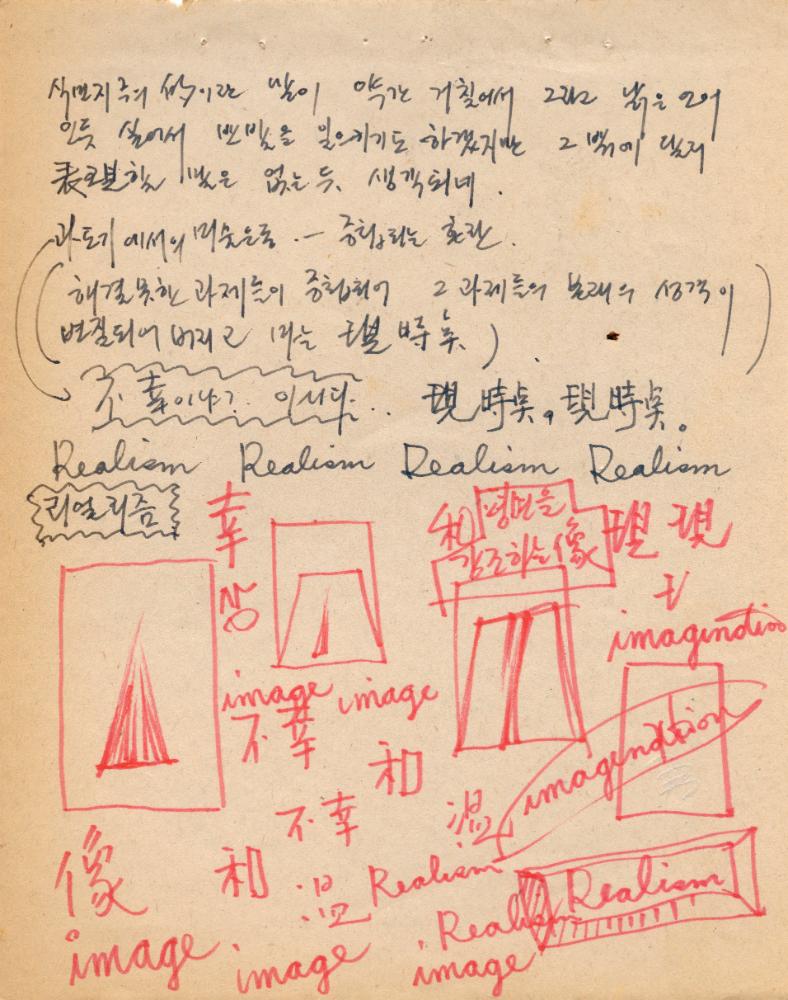 식민지주의 的이란 말이 약간 거칠어서 그리고 낡은 언어
인듯 싶어서 반발을 일으키기도 하겠지만 그 밖에 달리
表現할 말은 없는 듯 생각되네.
과도기에서의 미술운동 — 중첩되는 혼란.
(해결못한 과제들이 중첩되어 그 과제들의 본래의 성격이
변질되어 버리고 마는 現時点.)
不幸이냐? 이시다.. 現時点, 現時点。
Realism Realism Realism Realism
리얼리즘
幸
상
和 평면을
강조하는 像
現 現
imagination
image image
不幸
和
imagination
不幸
温
像
和
温
Realism
Realism
Realism
image
image
image